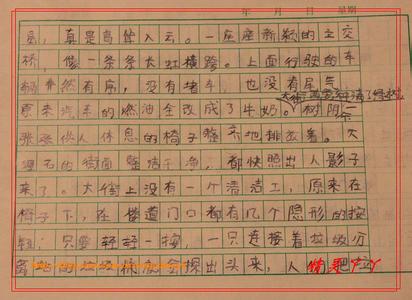 年 月 日 星期
晃，真是高耸入云。一座座新颖的立交
桥，像一条条大虹横跨。上面行驶的车
辆井然有序，没有堵车，也没有尾气
原来汽车的燃油全改成了牛奶。树阴下
张张供人休息的椅子整齐地排放着。大
理石的街面整洁干净，都快照出人影子
来了。大街上没有一个清洁工，原来在
椅子下，在楼道门口都有几个隐形的按
钮：只要轻轻一按，一只连接着垃圾分
离站的垃圾桶就会探出头来，人